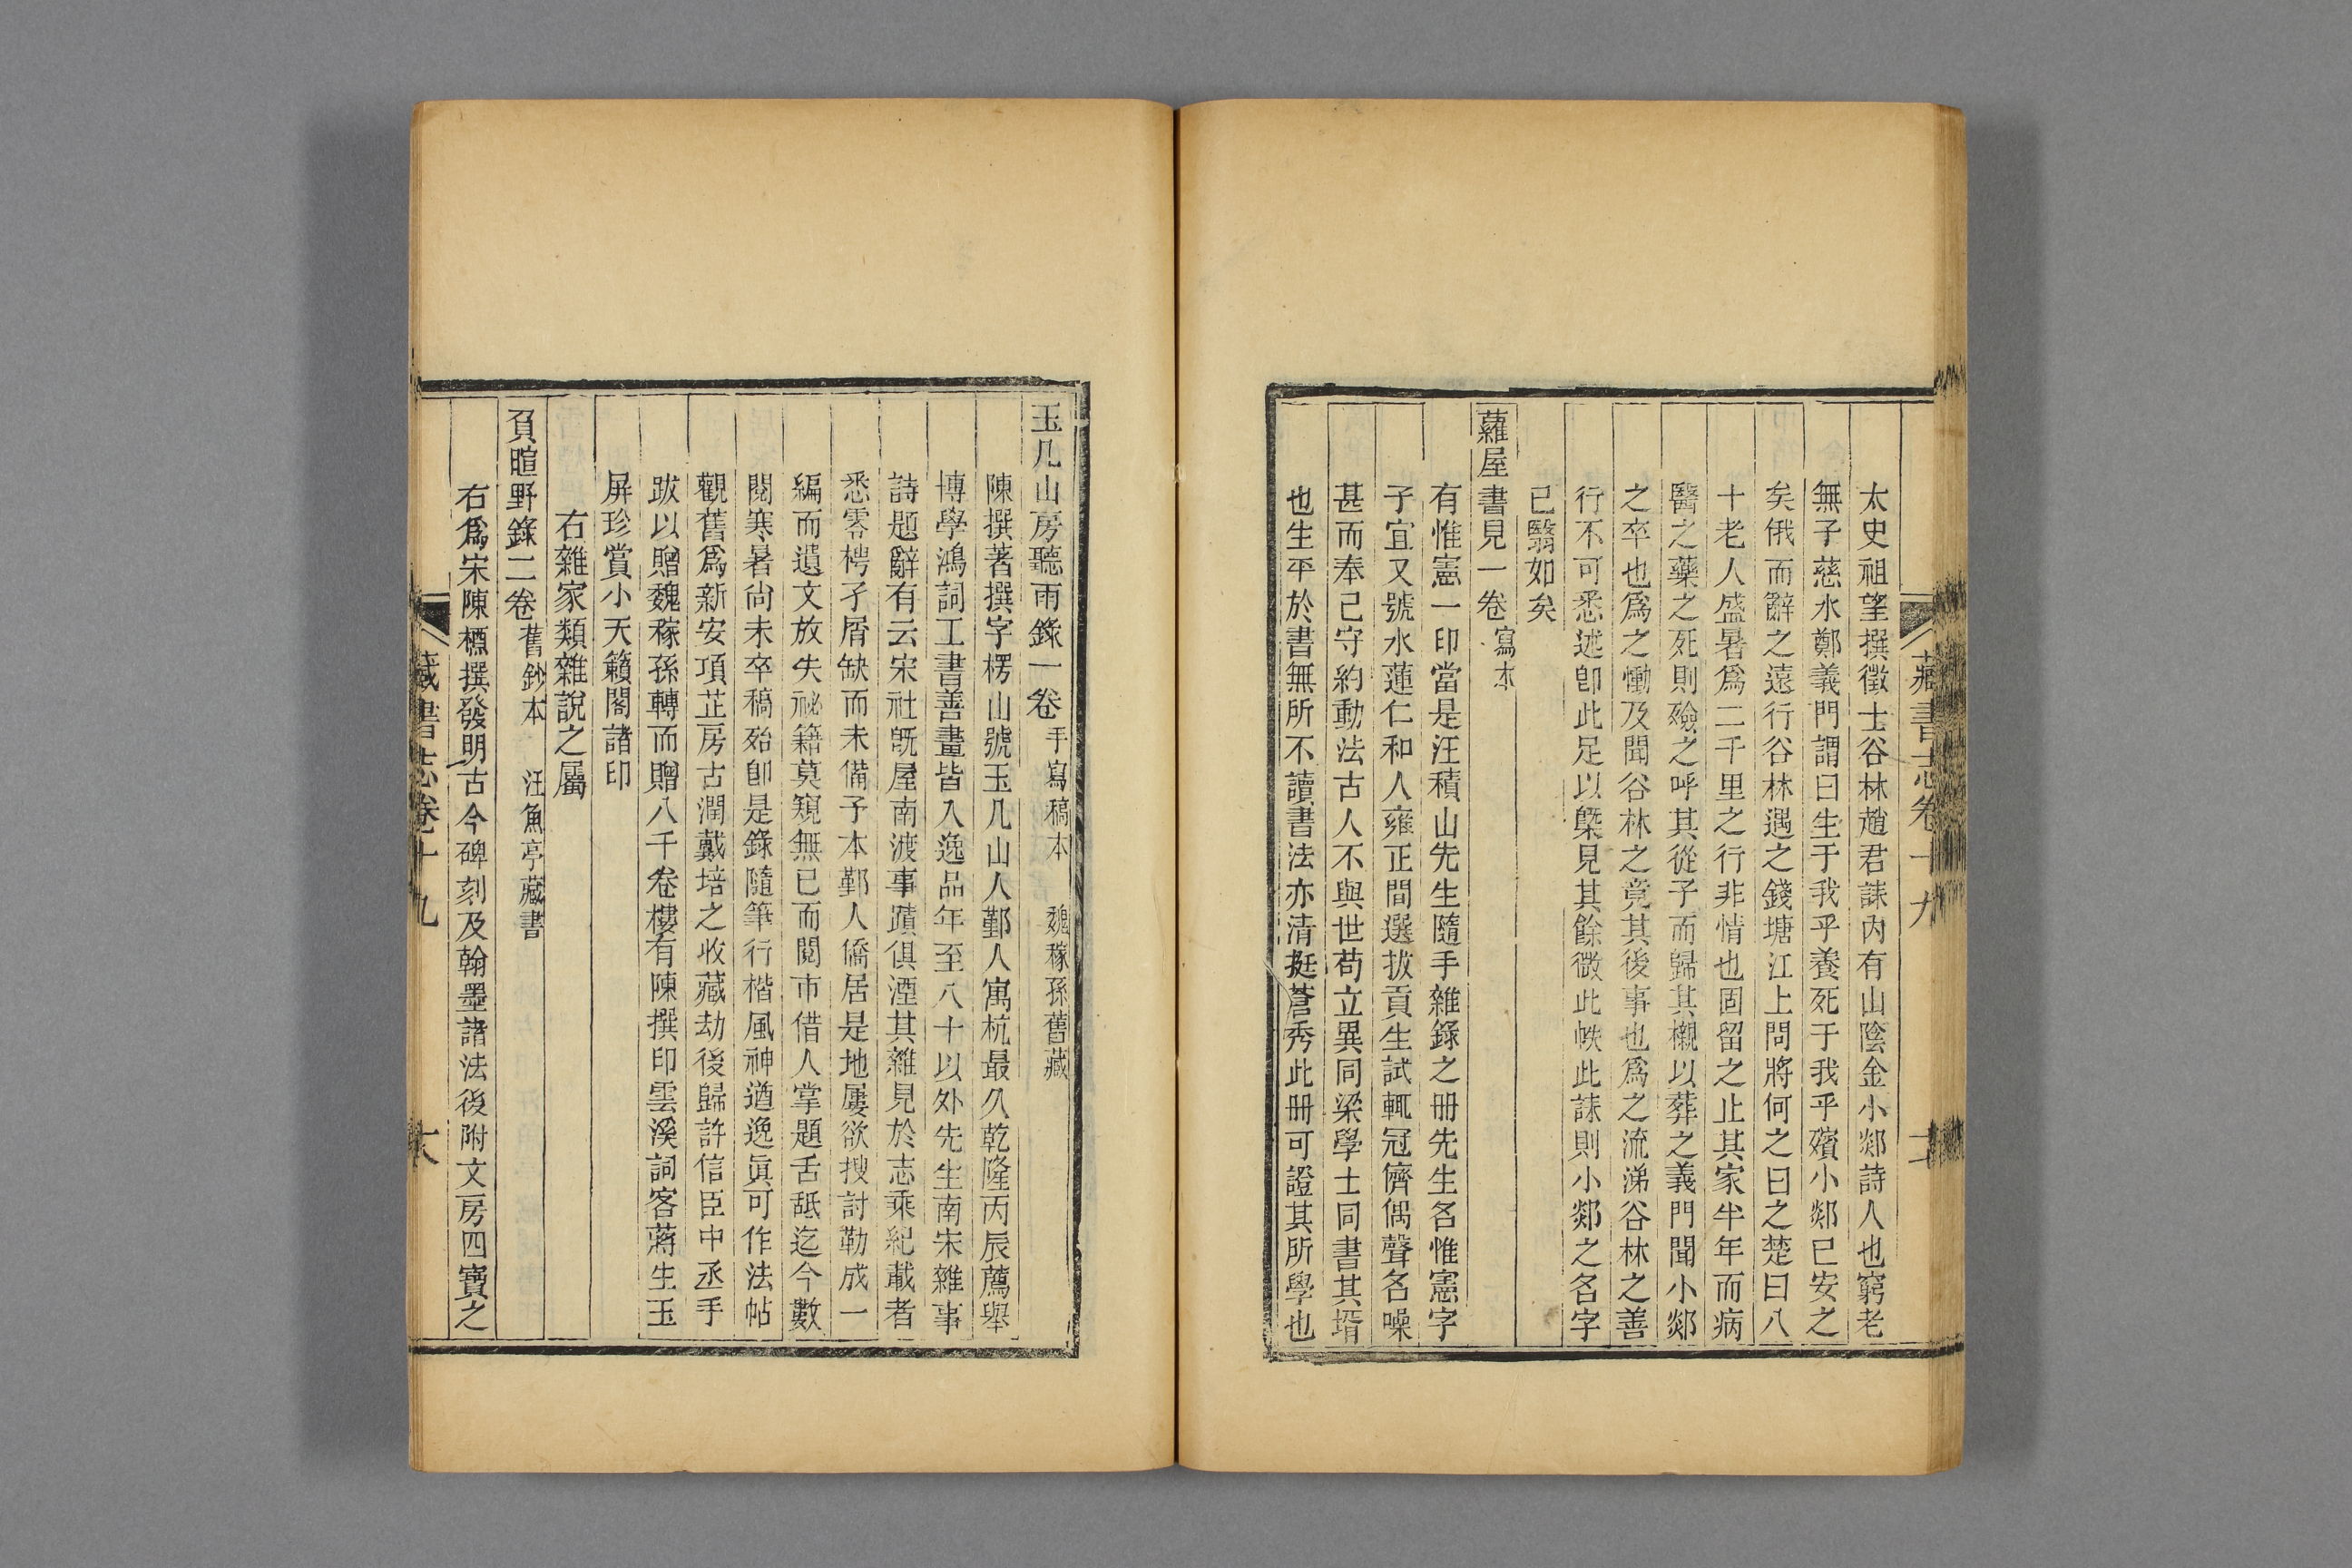 藏書志卷十九
太史祖望撰徵士谷林趙君誄內有山陰金小郯詩人也窮老
無子慈水鄭義門謂曰生于我乎養死于我乎殯小郯已安之
矣俄而辭之遠行谷林遇之錢塘江上問將何之曰之楚曰八
十老人盛暑爲二千里之行非情也固留之止其家半年而病
醫之藥之死則殮之呼其從子而歸其櫬以葬之義門聞小郯
之卒也爲之慟及聞谷林之竟其後事也爲之流涕谷林之善
行不可悉述卽此足以槩見其餘微此帙此誄則小郯之名字
已翳如矣
蘿屋書見一卷寫本
有惟憲一印當是汪積山先生隨手雜錄之冊先生名惟憲字
子宜又號水蓮仁和人雍正間選拔貢生試輒冠儕偶聲名噪
甚而奉己守約動法古人不與世苟立異同梁學士同書其壻
也生平於書無所不讀書法亦清挺蒼秀此冊可證其所學也
玉几山房聽雨錄一卷手寫稿本 魏稼孫舊藏
陳撰著撰字楞山號玉几山人鄞人寓杭最久乾隆丙辰薦舉
博學鴻詞工書善畫皆入逸品年至八十以外先生南宋雜事
詩題辭有云宋社旣屋南渡事蹟俱湮其雜見於志乘紀載者
悉零㮙孑屑缺而未備予本鄞人僑居是地屢欲搜討勒成一
編而遺文放失祕籍莫窺無已而閱市借人掌題舌舐迄今數
閱寒暑尙未卒稿殆卽是錄隨筆行楷風神遒逸眞可作法帖
觀舊爲新安項芷房古潤戴培之收藏劫後歸許信臣中丞手
跋以贈魏稼孫轉而贈八千卷樓有陳撰印雲溪詞客蔣生玉
屏珍賞小天籟閣諸印
右雜家類雜說之屬
負暄野錄二卷舊鈔本 汪魚亭藏書
右爲宋陳槱撰發明古今碑刻及翰墨諸法後附文房四寶之
藏書志卷十九